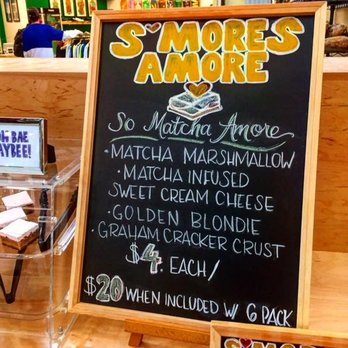 S'MORES
AMORE
So Matcha Amore
• MATCHA MARSHMALLOW
• MATCHA INFUSED
SWEET CREAM CHEESE
• GOLDEN BLONDIE
• GRAHAM CRACKER CRUST
$4. EACH/
$20 WHEN INCLUDED W/ 6 PACK
BAE
S'MORES